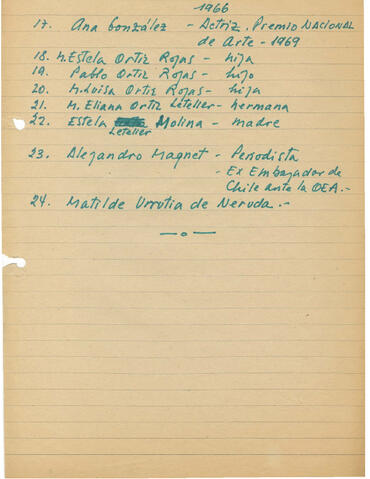 1966
17. Ana González - Actriz. Premio NACIONAL
de Arte - 1969
18. M. Estela Ortiz Rojas - hija
19. Pablo Ortiz Rojas - hijo
20. M. Luisa Ortiz Rojas - hija
21. M. Eliana Ortiz Letelier - hermana
22. Estela Letelier Molina - madre
23. Alejandro Magnet - Periodista
- Ex Embajador de
Chile ante la OEA.-
24. Matilde Urrutia de Neruda.-